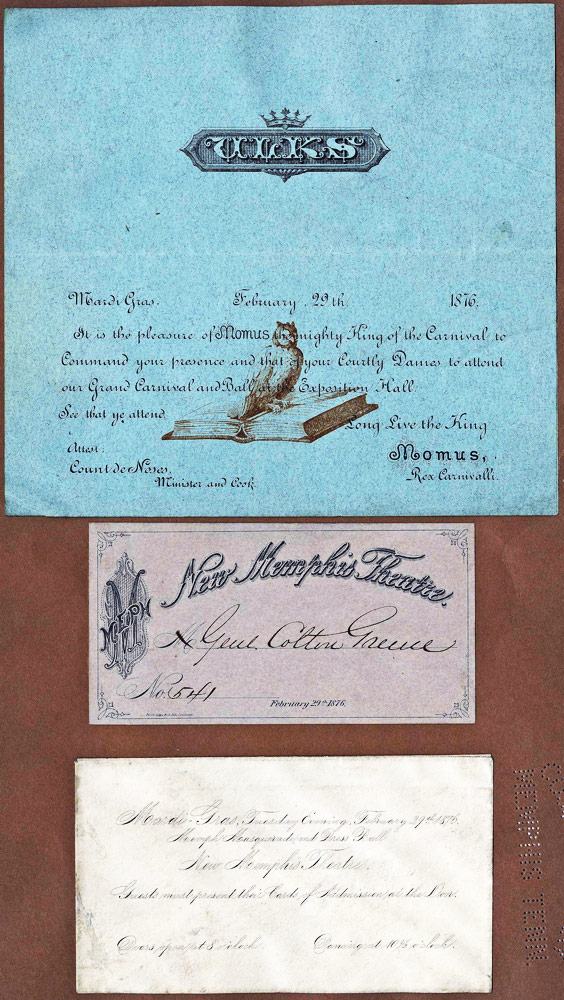 ULKS
Mardi Gras. February 29th 1876.
It is the pleasure of Momus the mighty King of the Carnival to
Command your presence and that of your Courtly Dames to attend
our Grand Carnival and Ball at the Exposition Hall.
See that ye attend.
Long Live the King
Attest: Momus,
Count de Noses, Rex Carnivalli.
Minister and Cook.
New Memphis Theatre.
Genl Colton Greene
No. 541
February 29th 1876.
Mardi-Gras, Tuesday Evening, February 29th 1876.
Masquerade and Dress Ball
New Memphis Theatre.
Guests must present their Cards of Admission at the Door.
Doors open at 8 o'clock Dancing at 10½ o'clock.